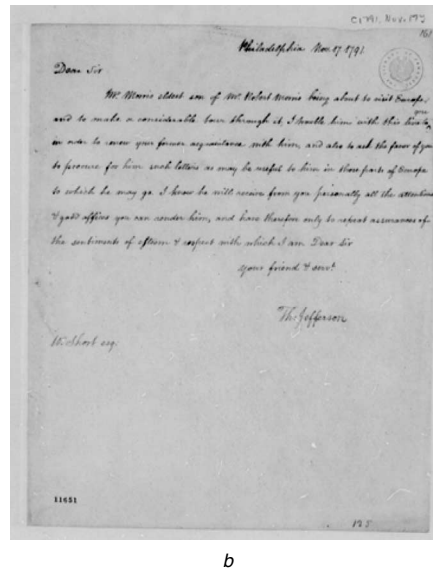 C1791, Nov. 17
161
Philadelphia Nov. 17. 1791
Dear Sir
Mr. Morris eldest son of Mr. Robert Morris being about to visit Europe,
and to make a considerable tour through it, I trouble him with this line to you
in order to renew your former acquaintance with him, and also to ask the favor of you
to procure for him such letters as may be useful to him in those parts of Europe
to which he may go. I know he will receive from you personally all the attentions
& good offices you can render him, and have therefore only to repeat assurances of
the sentiments of esteem & respect with which I am Dear Sir
your friend & servt.
Th: Jefferson
W. Short esq.
11651
b